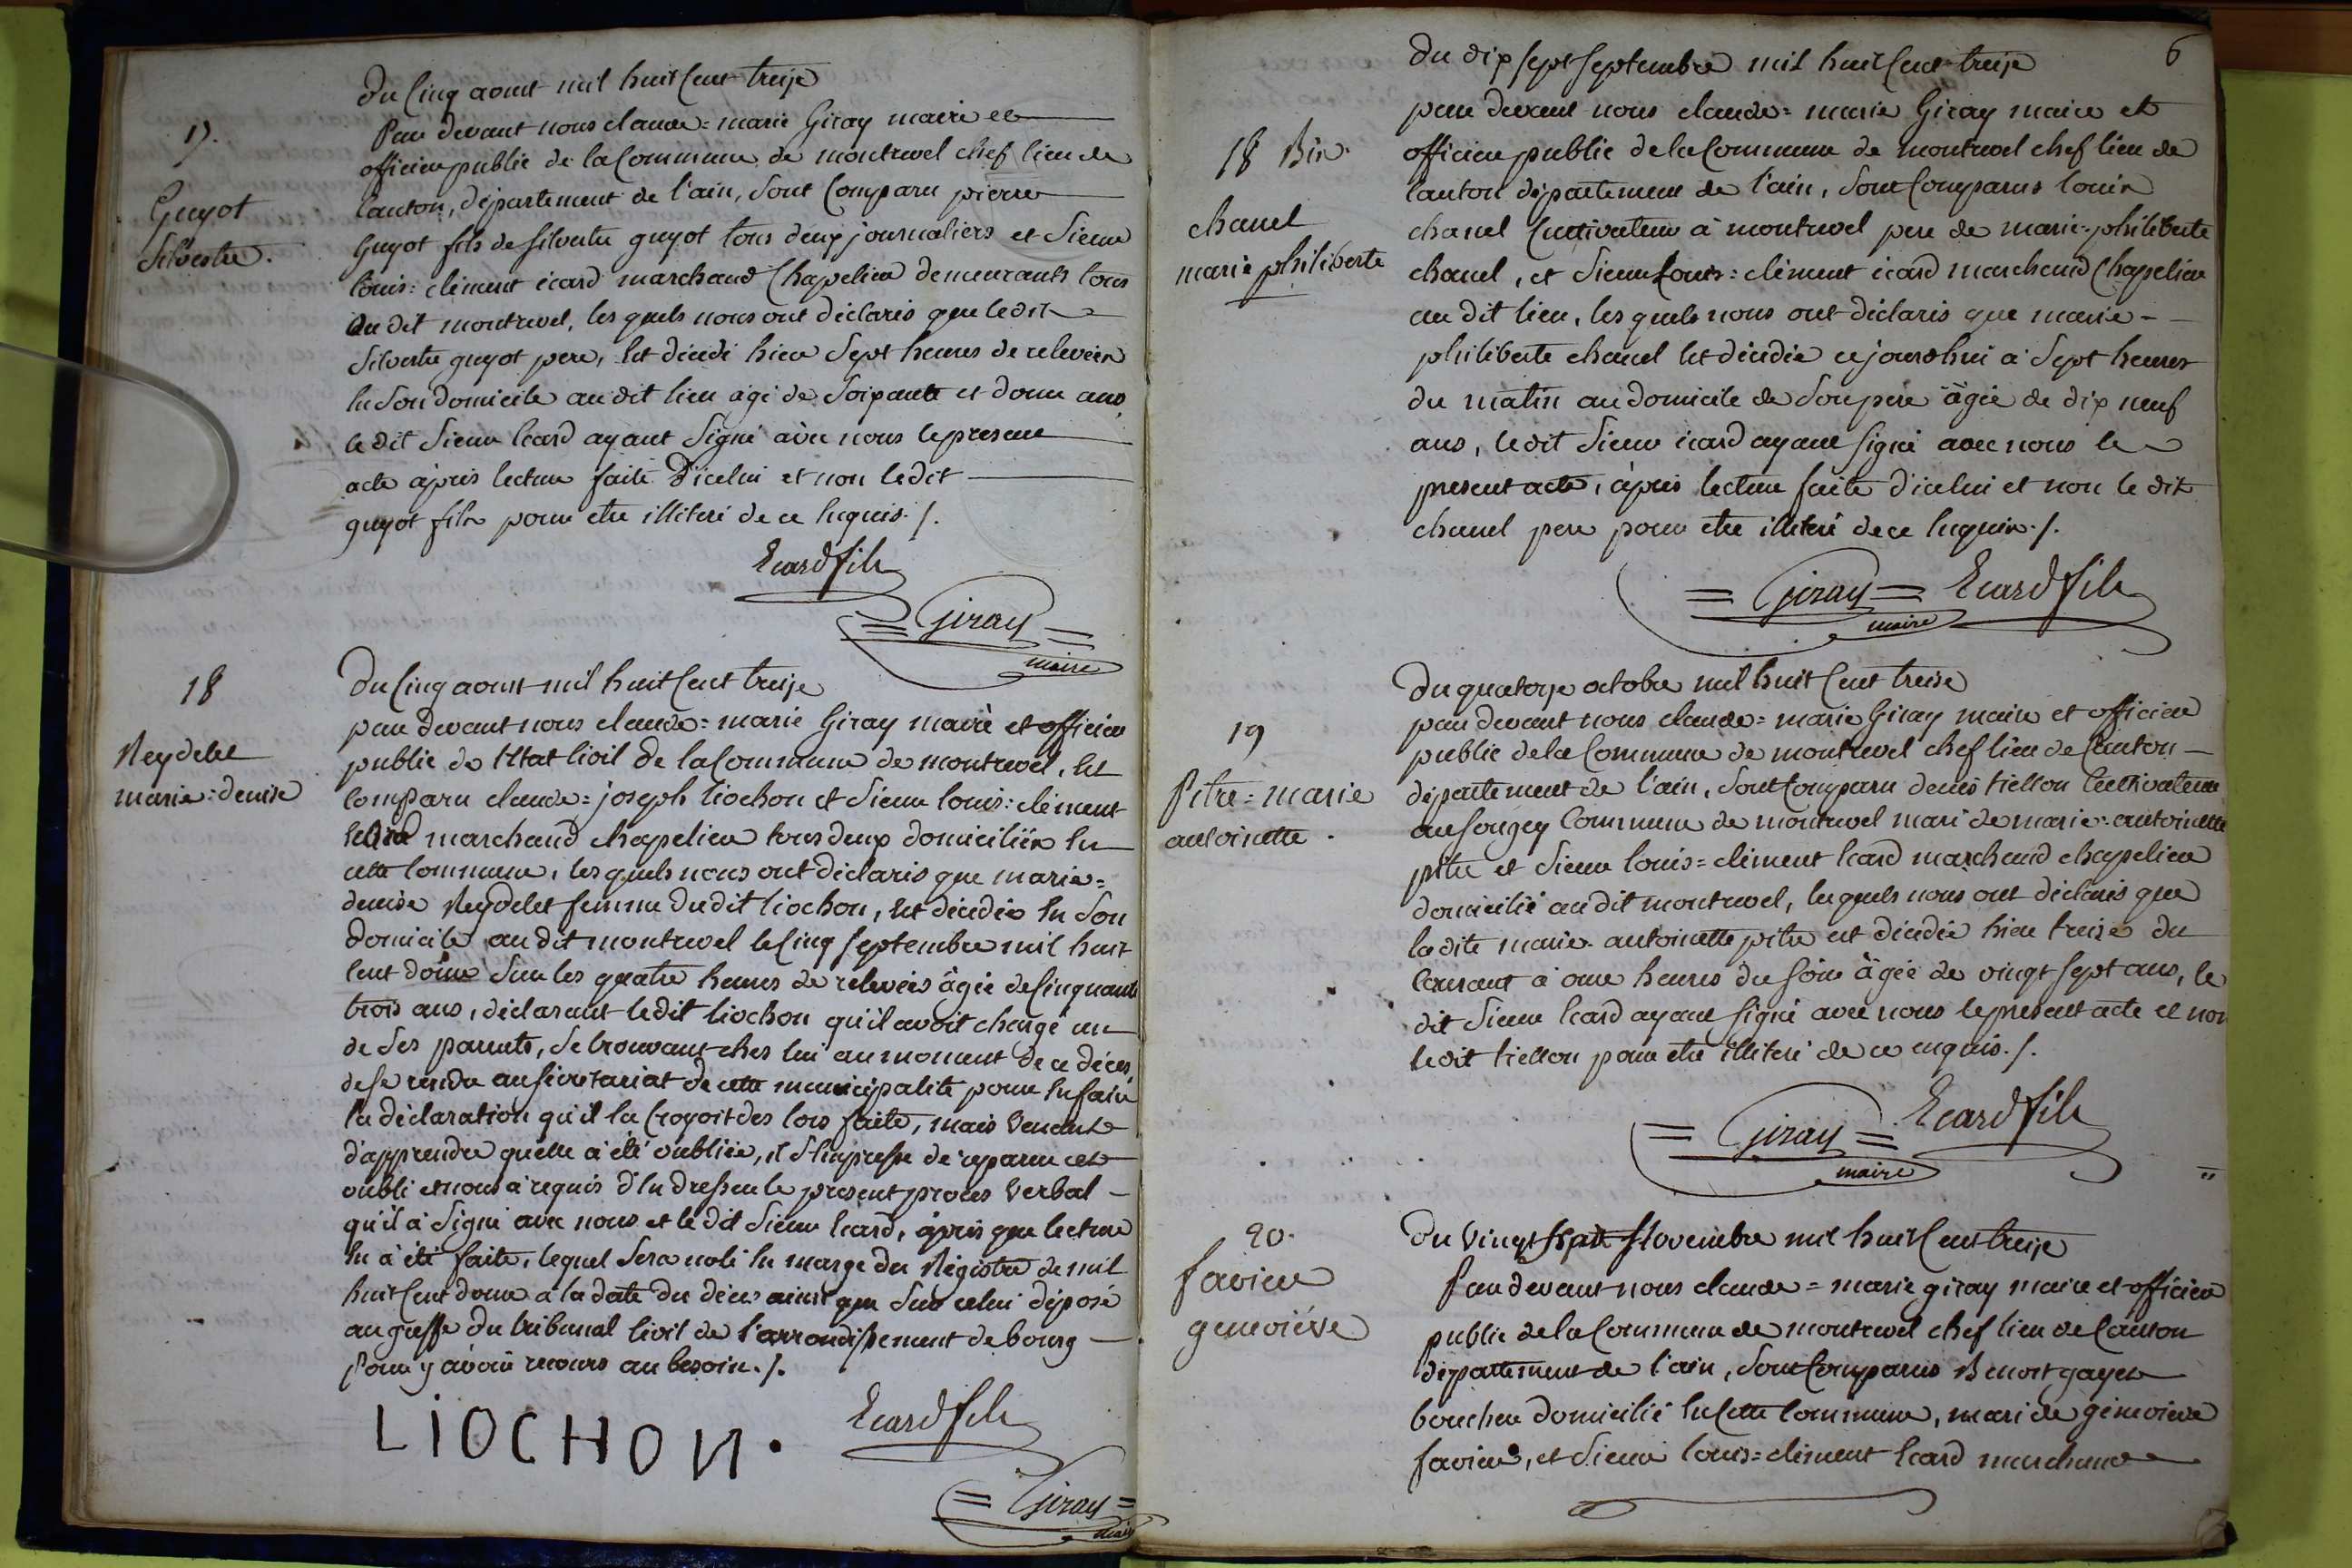 17.
Guyot
Silvestre.
Du Cinq aoust mil huit Cent treize
Par devant nous claude=marie Giray maire et
officier public de la Commune de montrevel chef lieu de
Canton, département de l'ain, Sont Comparu pierre
Guyot fils de Silvestre guyot tous deux journaliers et Sieur
louis=clément ecard marchand Chapelier demeurants tous
au dit montrevel, les quels nous ont déclarés que le dit
Silvestre guyot pere, Est décédé hier Sept heures de relevéés
En Son domicile au dit lieu agé de Soixante et douze ans,
le dit Sieur Ecard ayant Signé avec nous le present
acte après lecture faite d'icelui et non le dit
guyot fils pour etre illiteré de ce Enquis./.
Ecard fils
=Giray=
maire
18
Neydelet
marie=denise
Du Cinq aoust mil huit Cent treize
par devant nous claude=marie Giray maire et officier
public de l'Etat Civil de la Commune de montrevel, Est
Comparu claude=joseph liochon et Sieur louis=clément
Ecard marchand chapelier tous deux domiciliés En
cette Commune, les quels nous ont déclarés que marie=
denise Neydelet femme du dit liochon, Est décédée En Son
domicile au dit montrevel le Cinq Septembre mil huit
Cent douze Sur les quatre heures de relevées âgée de Cinquante
trois ans, déclarant le dit liochon qu'il avoit chargé un
de Ses parents, Se trouvant chés lui au moment de ce décés,
de Se rendre au Sécrétariat de cette municipalité pour En faire
la déclaration qu'il la Croyoit des lors faite, mais Venant
d'apprendre qu'elle à été oubliée, il S'Empresse de réparer cet
oubli et nous a requis d'En dresser le present procés Verbal
qu'il à Signé avec nous et le dit Sieur Ecard, après que lecture
En à été faite, lequel Sera noté En marge du Régistre de mil
huit Cent douze a la date du déces ainsi que Sur celui déposé
au greffe du tribunal Civil de l'arrondissement de bourg
pour y avoir recours au besoin./.
LIOCHON.
Ecard fils
=Giray=
maire
6
18 Bis.
chanel
marie philiberte
Du dix Sept Septembre mil huit Cent treize
par devant nous claude=marie Giray maire et
officier public de la Commune de montrevel chef lieu de
Canton département de l'ain, Sont Comparus louis
chanel Cultivateur à montrevel pere de marie=philiberte
chanel, et Sieur Louis=clément ecard marchand Chapelier
au dit lieu, les quels nous ont déclarés que marie-
philiberte chanel Est décédée ce jourd'hui à Sept heures
du matin au domicile de Son pere âgée de dix neuf
ans, le dit Sieur ecard ayant Signé avec nous le
present acte, après lecture faite d'icelui et non le dit
chanel pere pour etre illiteré de ce Enquis./.
=Giray=
maire
Ecard fils
19
Pitre=marie
antoinette.
Du quatorze octobre mil huit Cent treise
par devant nous claude=marie Giray maire et officier
public de la Commune de montrevel chef lieu de Canton
département de l'ain, Sont Comparu denis tiellon Cultivateur
au Sougey Commune de montrevel mari de marie=antoinette
pitre et Sieur louis=clément Ecard marchand chapelier
domicilié au dit montrevel, lesquels nous ont déclarés que
la dite marie antoinette pitre est décédée hier treise du
Courant à onze heures du Soir âgée de vingt Sept ans, le
dit Sieur Ecard ayant Signé avec nous le present acte et non
le dit tiellon pour etre illiteré de ce enquis./.
=Giray=
maire
Ecard fils
20.
favier
geneviéve
Du Vingt Sept Novembre mil huit Cent treize
Par devant nous claude=marie giray maire et officier
public de la Commune de montrevel chef lieu de Canton
département de l'ain, Sont Comparus Benoit gayet
boucher domicilié En Cette Commune, mari de génevieve
favier, et Sieur louis=clément Ecard marchand